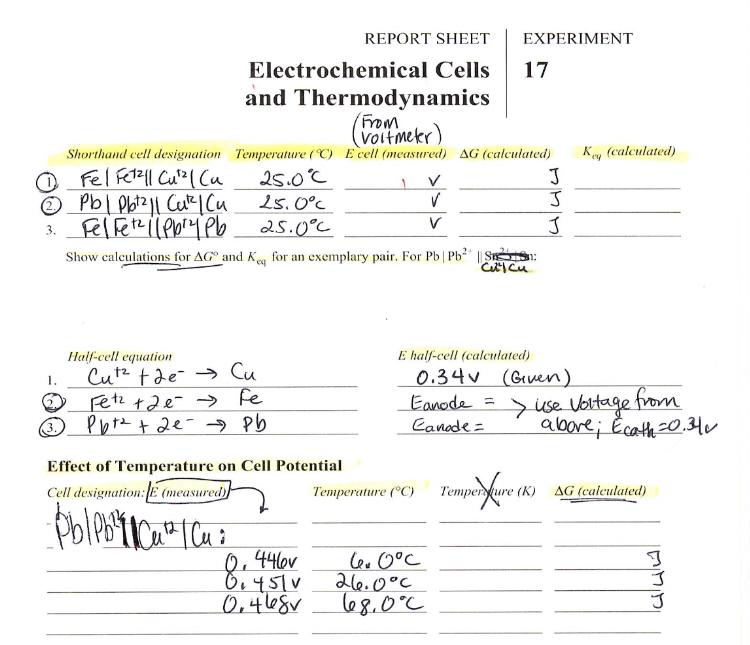 REPORT SHEET EXPERIMENT
Electrochemical Cells 17
and Thermodynamics
(From voltmeter)
Shorthand cell designation Temperature (°C) E cell (measured) ΔG (calculated) Keq (calculated)
1. Fe | Fe⁺² || Cu⁺² | Cu 25.0°C V J
2. Pb | Pb⁺² || Cu⁺² | Cu 25.0°C V J
3. Fe | Fe⁺² || Pb⁺² | Pb 25.0°C V J
Show calculations for ΔG° and Keq for an exemplary pair. For Pb | Pb²⁺ || Sn²⁺ | Sn:
Cu⁺²/Cu
Half-cell equation E half-cell (calculated)
1. Cu⁺² + 2e⁻ → Cu 0.34v (Given)
2. Fe⁺² + 2e⁻ → Fe Eanode = > use voltage from
3. Pb⁺² + 2e⁻ → Pb Eanode = above; Ecath = 0.34v
Effect of Temperature on Cell Potential
Cell designation: E (measured) Temperature (°C) Temperature (K) ΔG (calculated)
Pb | Pb⁺² || Cu⁺² | Cu :
0.446v 6.0°C J
0.451v 26.0°C J
0.468v 68.0°C J